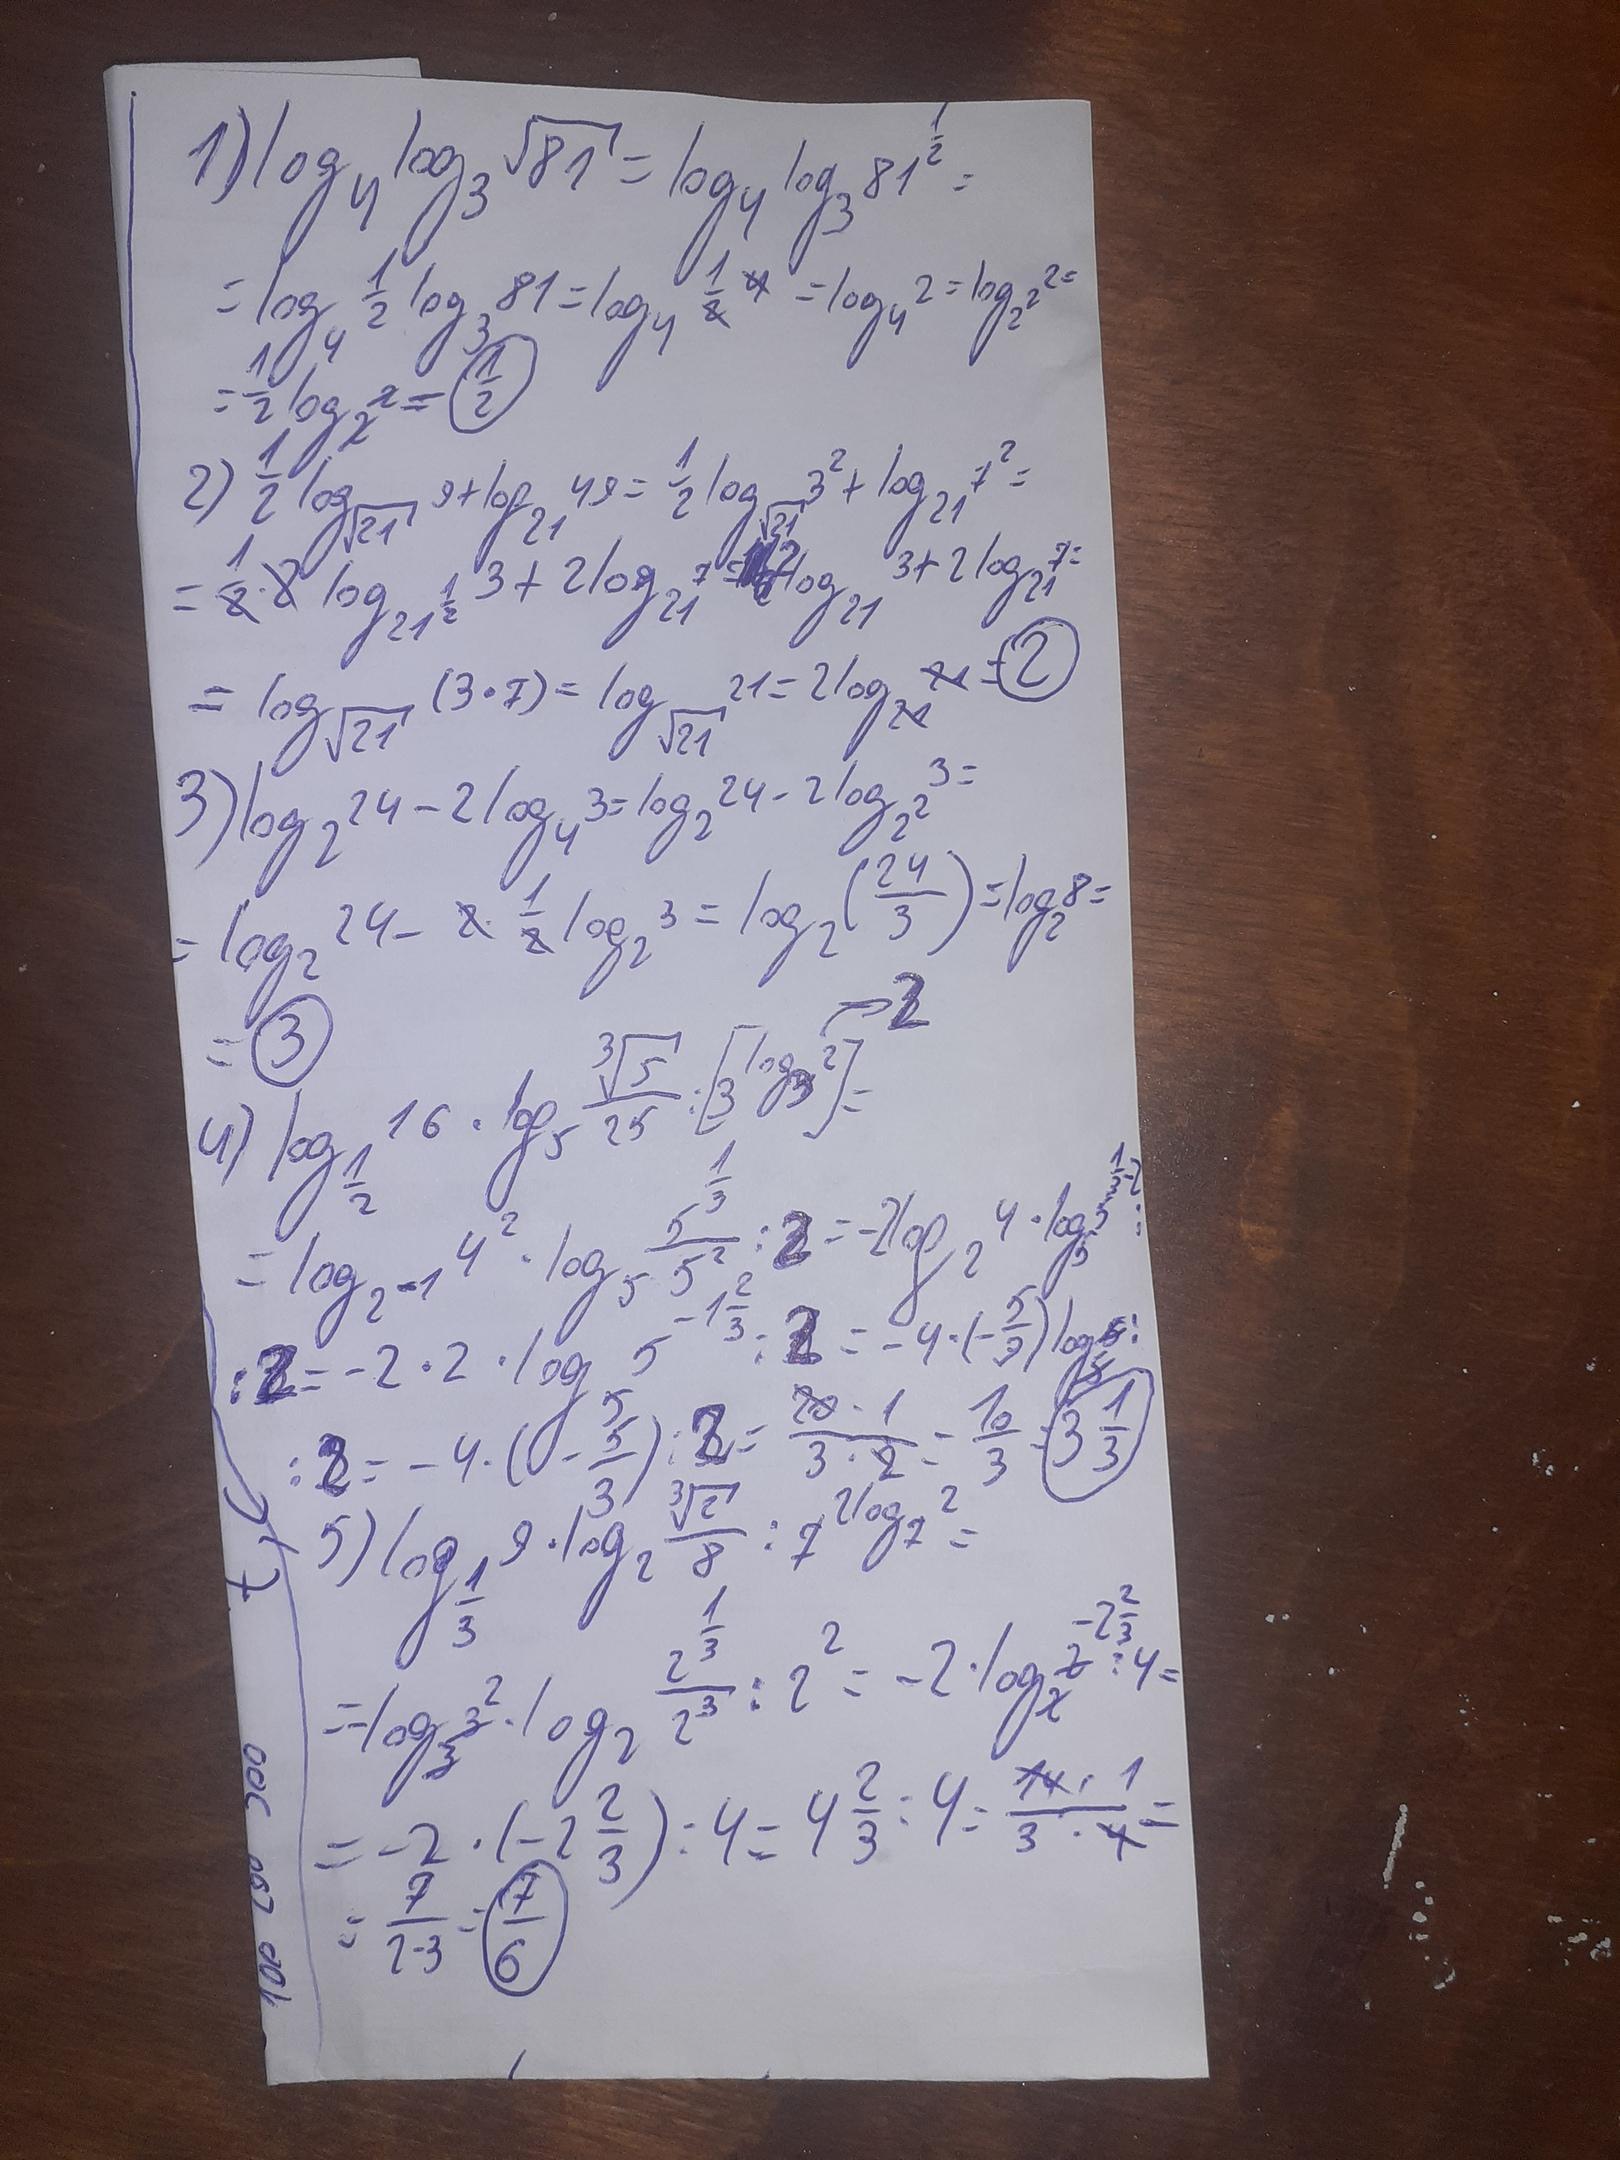 1) log₄ log₃ √81 = log₄ log₃ 81^½ =
= log₄ ½ log₃ 81 = log₄ ½ 4 = log₄ 2 = log_{2²} 2 =
= ½ log₂ 2 = ½
2) ½ log_{√21} 9 + log₂₁ 49 = ½ log_{√21} 3² + log₂₁ 7² =
= ½ · 2 log_{21^½} 3 + 2 log₂₁ 7 = 2 log₂₁ 3 + 2 log₂₁ 7 =
= log_{√21} (3 · 7) = log_{√21} 21 = 2 log₂₁ 21 = 2
3) log₂ 24 - 2 log₄ 3 = log₂ 24 - 2 log_{2²} 3 =
= log₂ 24 - 2 · ½ log₂ 3 = log₂ (24/3) = log₂ 8 =
= 3
→ 2
4) log_{½} 16 · log₅ ∛5/25 : [3^{log₃ 2}] =
= log_{2^{-1}} 4² · log₅ 5^{⅓}/5² : 2 = -2 log₂ 4 · log₅ 5^{⅓-2} :
: 2 = -2 · 2 · log₅ 5^{-1⅔} : 2 = -4 · (-5/3) log₅ 5 :
: 2 = -4 · (-5/3) : 2 = 20 · 1/3 · 2 = 10/3 = 3⅓
5) log_{⅓} 9 · log₂ ∛2/8 : 7^{2 log₇ 2} =
= -log₃ 3² · log₂ 2^{⅓}/2³ : 2² = -2 · log₂ 2^{-2⅔} : 4 =
= -2 · (-2⅔) : 4 = 4⅔ : 4 = 14 · 1/3 · 4 =
= 7/2·3 = 7/6